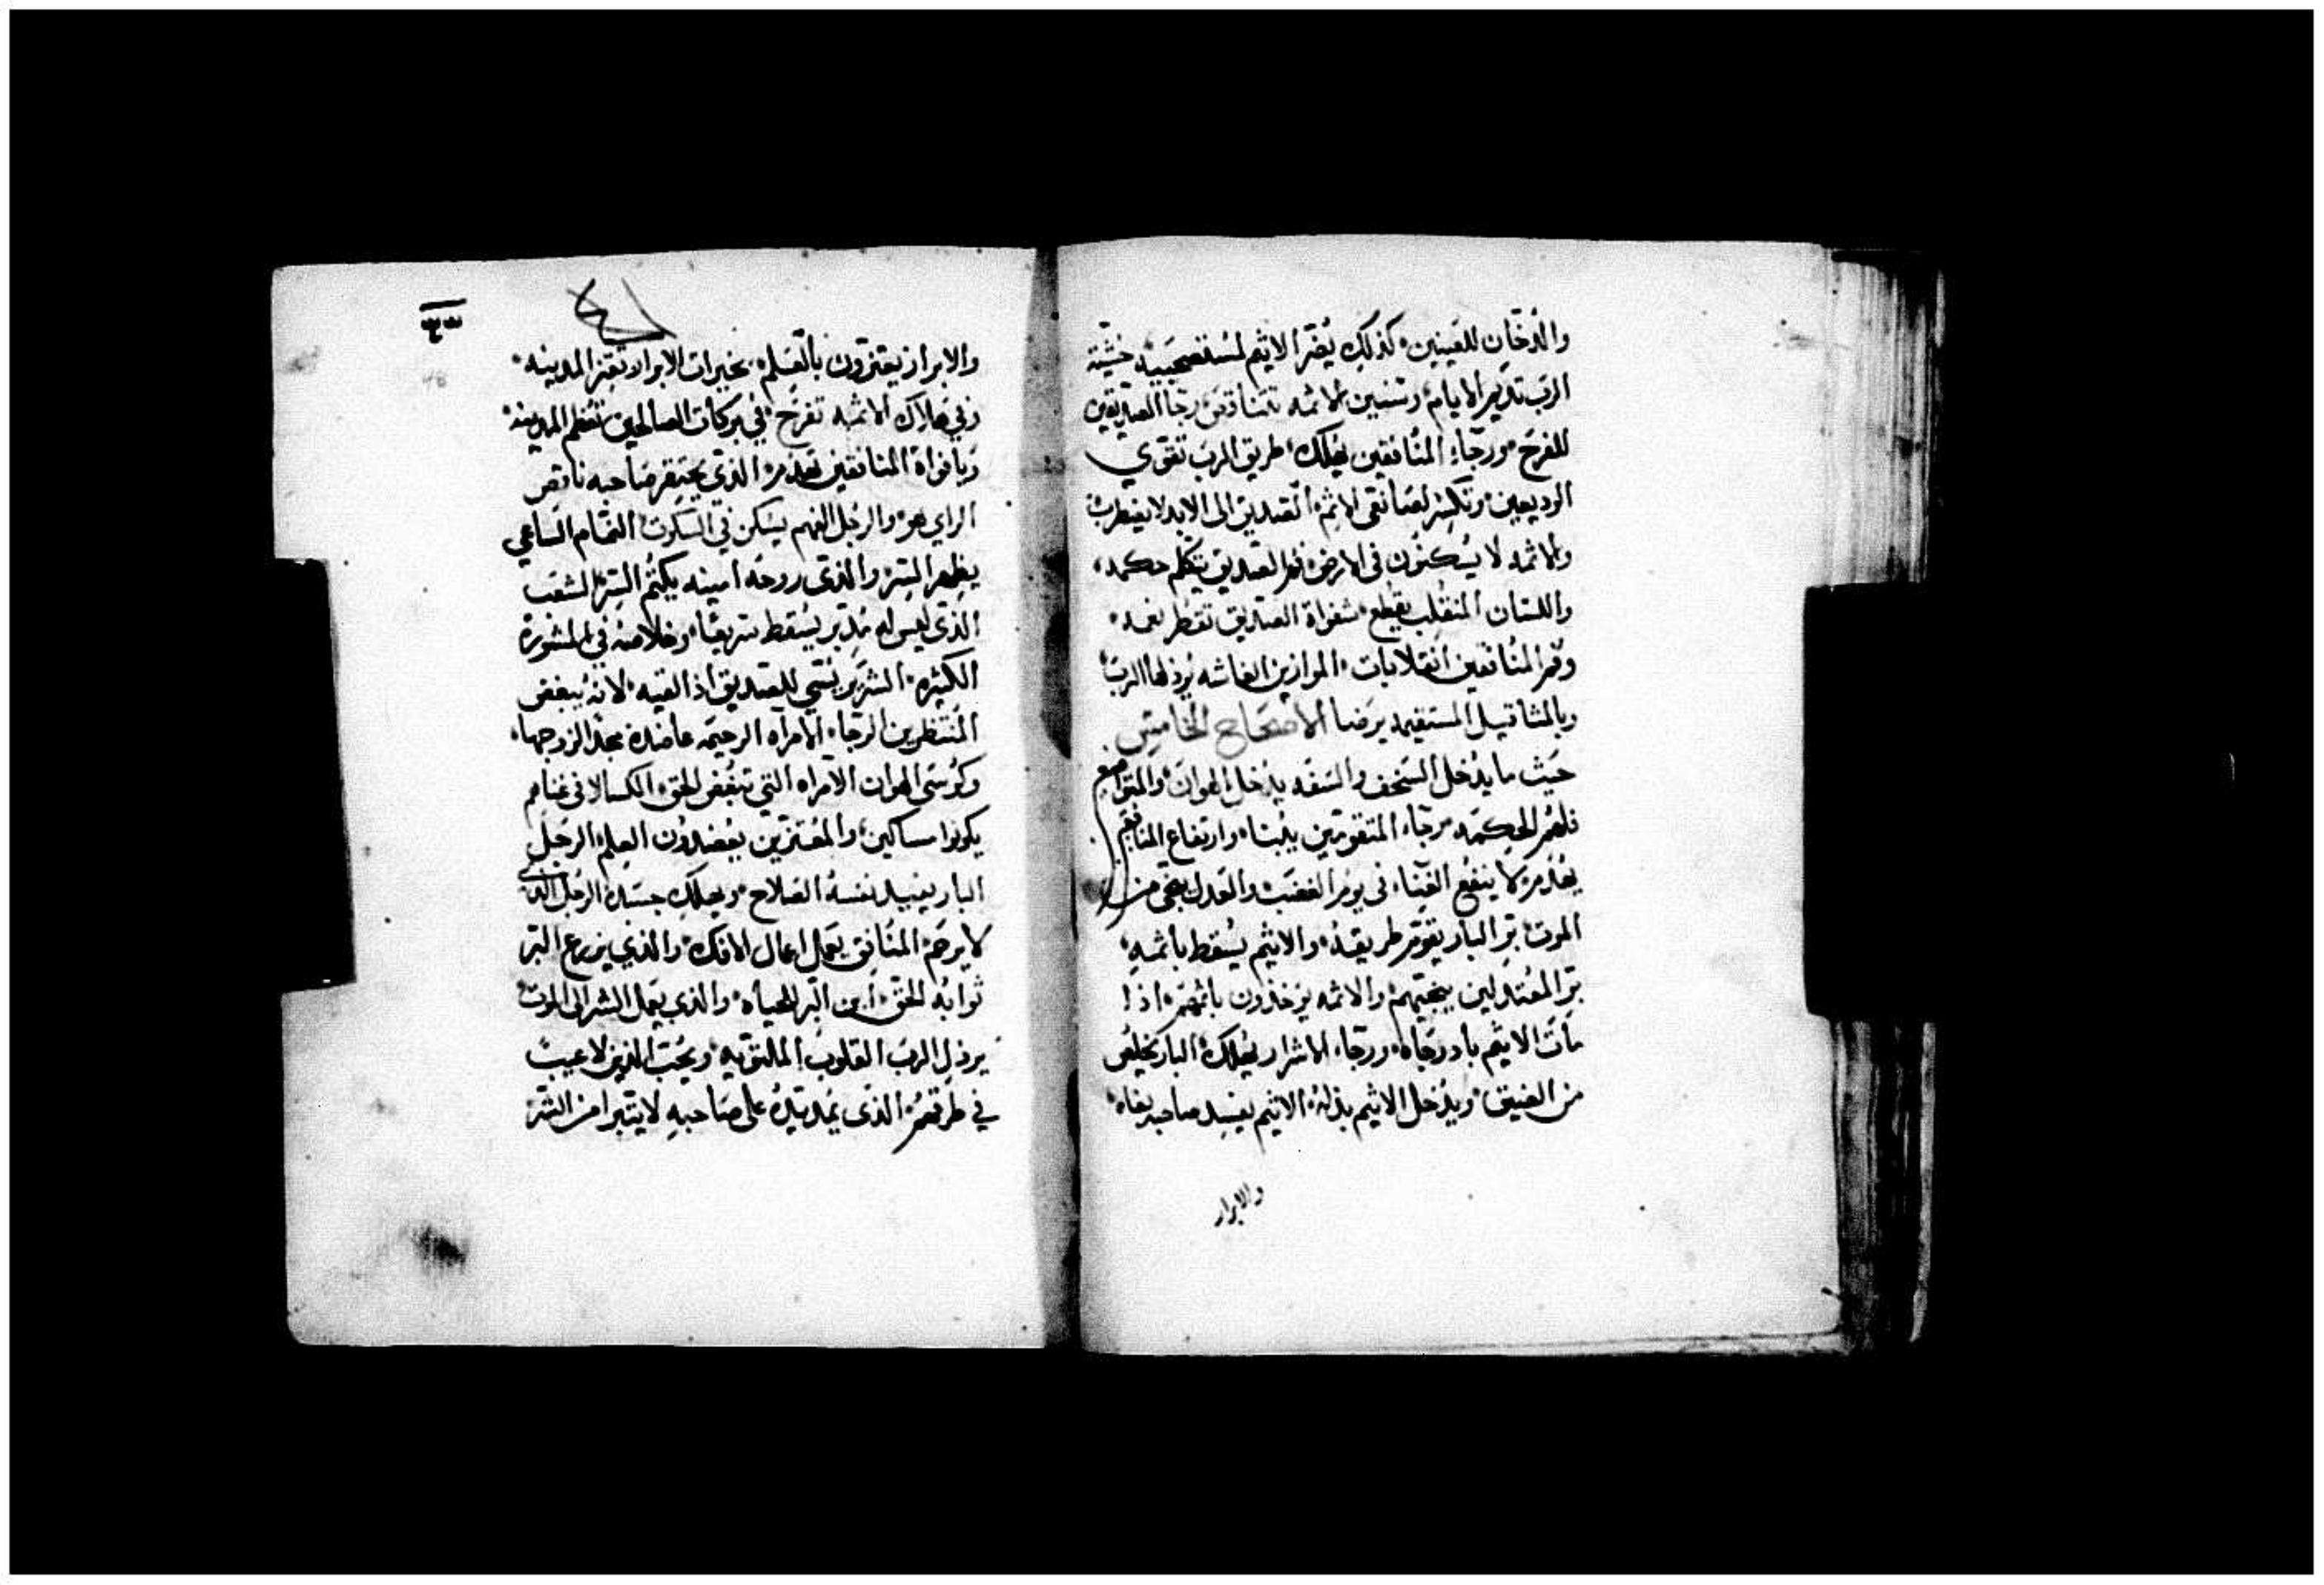 والدخان للعينين كذلك يضر الاثيم لمستصحبيه خشية
الرب تديم الايام وسنين الاثمه تتناقص رجا الصديقين
للفرح ورجاء المنافقين يهلك طريق الرب تقوي
الوديعين وتكسر لصانعى الاثم الصديق الى الابد لا يضطرب
والاثمه لا يسكنون فى الارض فم الصديق يتكلم حكمه
واللسان المنقلب يقطع شفواة الصديق تقطر نعمه
وفم المنافقين انقلابات الموازين الغاشه يرذلها الرب
وبالمثاقيل المستقيمه يرضا الاصحاح الخامس
حيث ما يدخل السخف والسفه يدخل الهوان والمتواضع
فلهم الحكمه رجاء المتقومين يثبتا وارتفاع المنافقين
يعدم لا ينفع الغناء فى يوم الغضب والعدل ينجى من
الموت بر البار يقوم طريقه والاثيم يسقط باثمه
بر المعتدلين ينجيهم والاثمه يوخذون باثمهم اذا
مات الاثيم باد رجاه ورجاء الاشرار يهلك البار يخلص
من الضيق ويدخل الاثيم بذله الاثيم يفسد صاحبه بفاه
والابرار
والابرار يعتزون بالعلم بخيرات الابرار تعتز المدينه
وفي هلاك الاثمه تفرح في بركات الصالحين تعظم المدينه
وبافواة المنافقين تعدم الذي يحتقر صاحبه ناقص
الراي هو والرجل الفهم يسكن في السكوت النمام الساعي
يظهر السر والذى روحه امينه يكتم السر الشعب
الذى ليس له مدبر يسقط سريعا وخلاصه في المشورة
الكثيره الشرير يسي للصديق اذا لقيه لانه يبغض
المنتظرين الرجاء الامراه الرحيمه عاضده مجد الزوجها
وكرسى الهوان الامراه التي تبغض الحق الكسالا فى غناهم
يكونوا مساكين والمعتزين يعضدون العلم الرجل
البار يفيد نفسه الصلاح ويهلك جسده الرجل الذى
لا يرحم المنافق يعمل اعمال الافك والذي يزرع البر
ثوابه الحق ابن البر للحياه والذي يعمل الشر الى الموت
يرذل الرب القلوب الملتويه ويحب الذين لا عيب
في طرقهم الذى يمد يده على صاحبه لا يتبرا من الشر